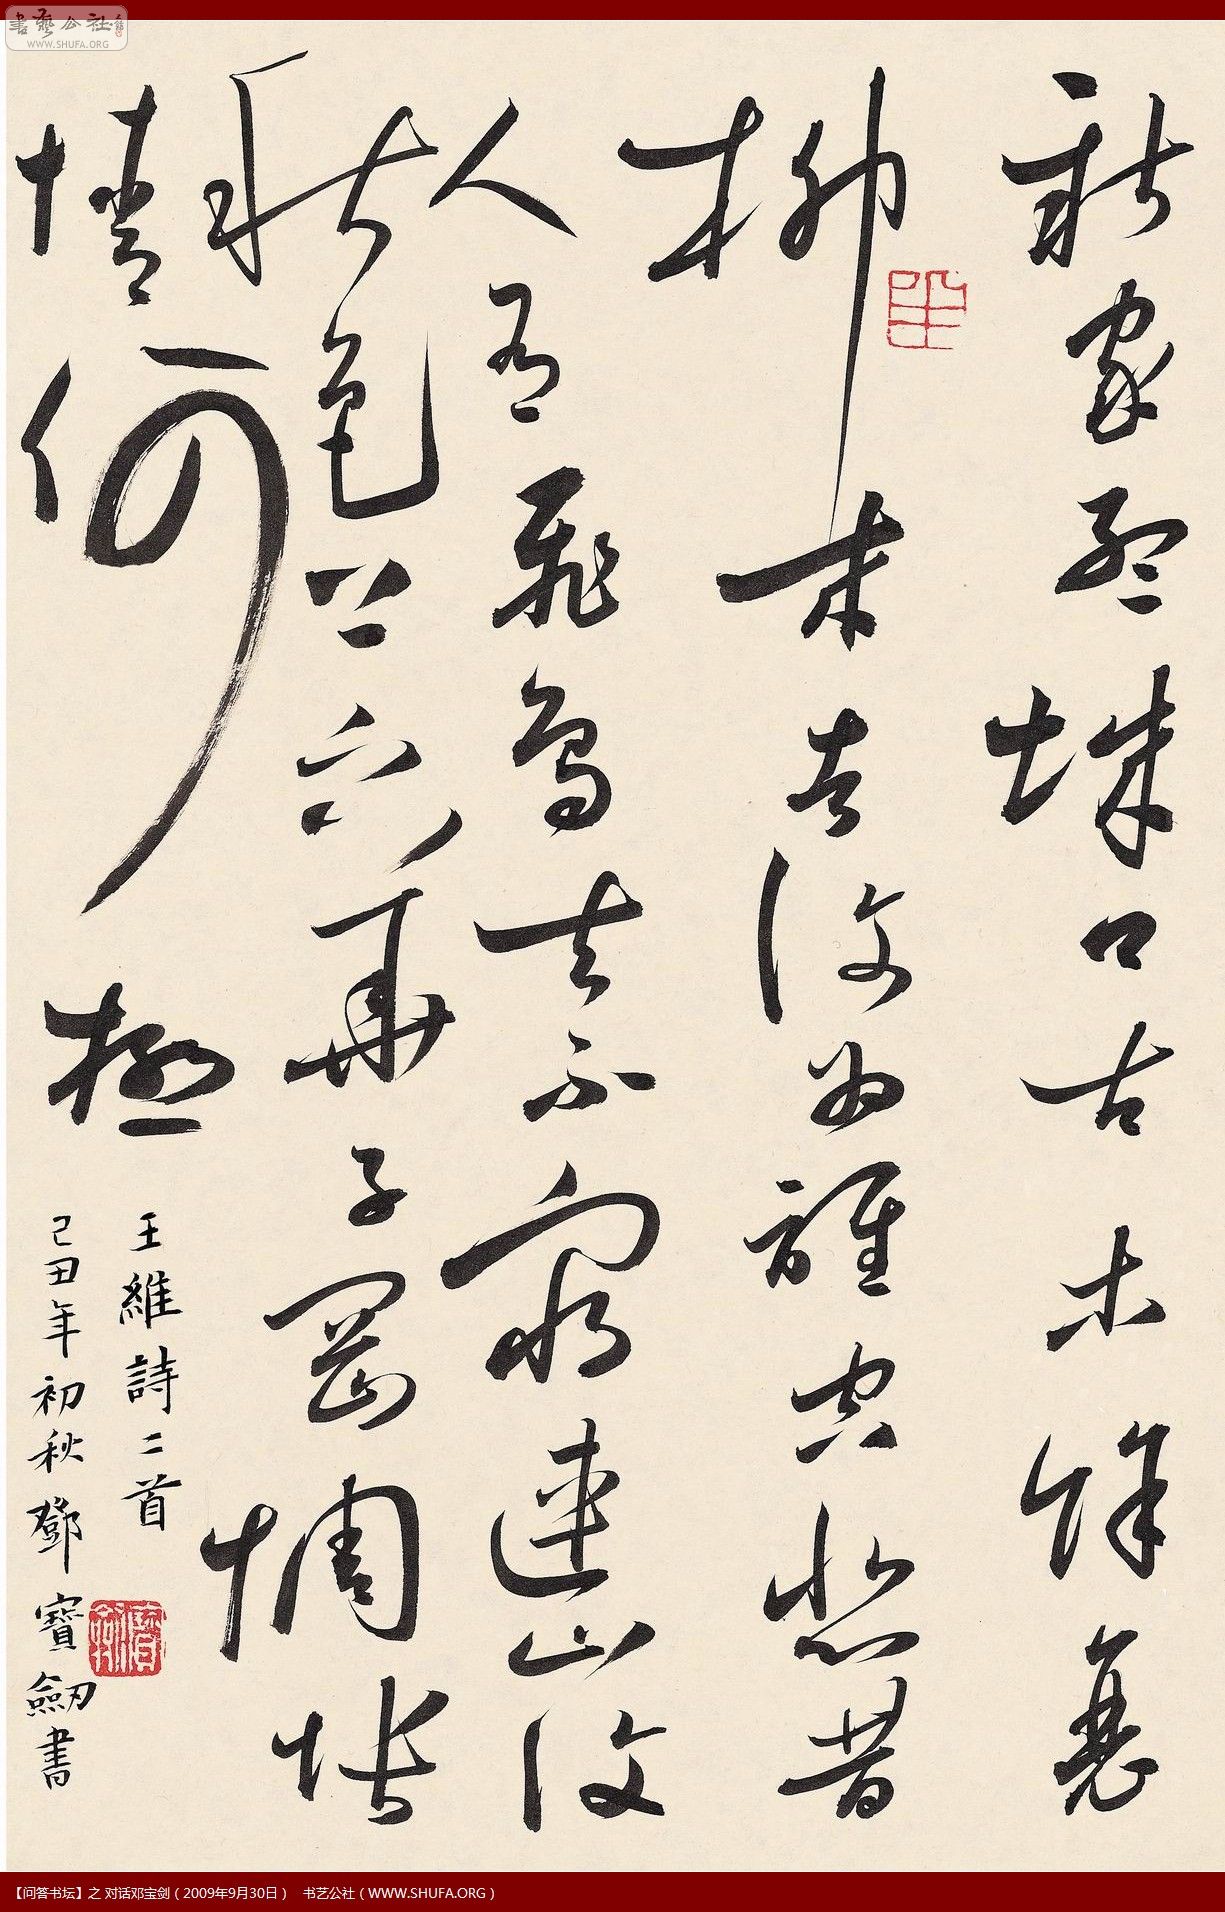 書藝公社
WWW.SHUFA.ORG
新家孟城口古木餘衰
柳来者復為誰空悲昔
人有飛鳥去不窮連山復
秋色上下華子岡惆悵
情何極
王維詩二首
己丑年初秋鄧寶劍書
【问答书坛】之 对话邓宝剑（2009年9月30日） 书艺公社（WWW.SHUFA.ORG）